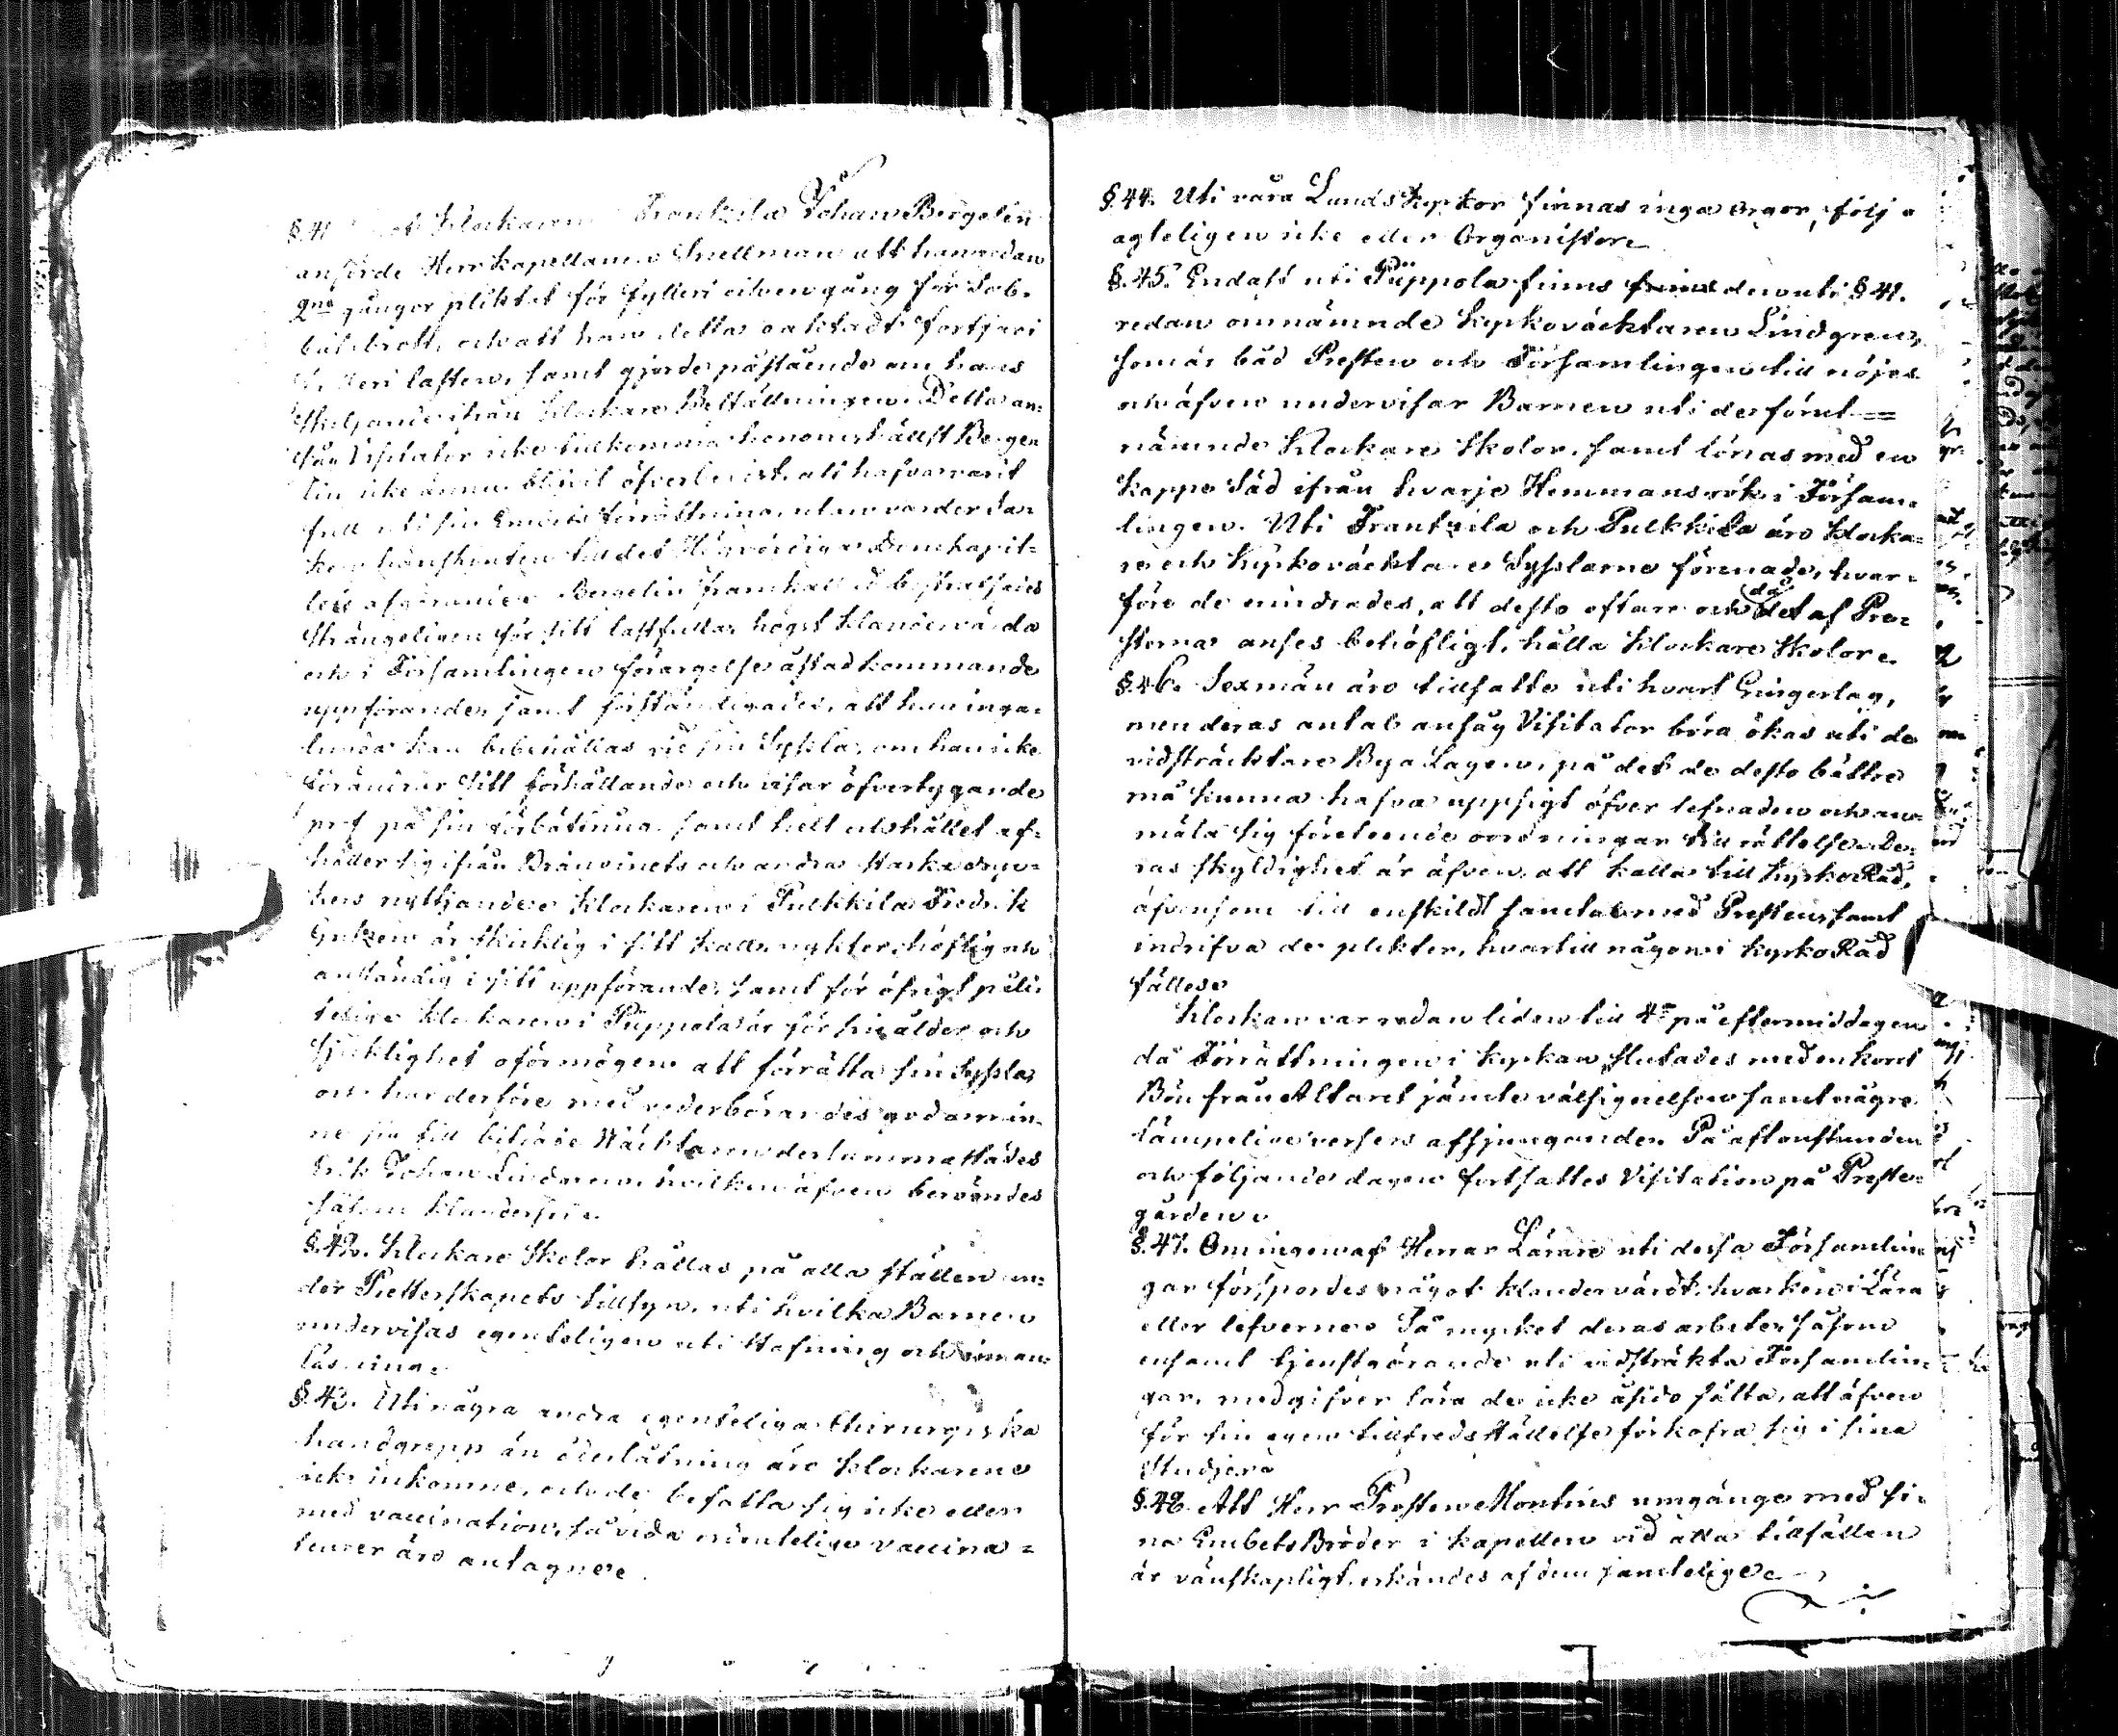 §.41 Klockaren Frantzila Johan Bergelin
anförde Herr Kapellanen Snellman att han redan
2ne gångor pliktat för fylleri och en gång för Sab-
batsbrott, och att han detta oaktadt fortfari
lasten, samt gjorde påstående om hans
skiljande ifrån Klockare Beställningen. Detta an-
såg Visitator icke tillkomma honom hällst Berge-
lin icke ännu blifvit öfverbevist, att hafva varit
full uti sin Embets förrättning, utan vorder Sa-
ken hänskuten till det Högvördiga Domkapit-
lets afgörande. Bergelin framkallad bestraffades
strängeligen för sitt lastfulla, högst klandervärda
och i Församlingen förargelse åstadkommande
uppförande, samt förständigades, att han inga-
lunda kan bibehållas vid sin Syssla, om han icke
förändrar sitt förhållande och visar öfvertygande
prof på sin förbättring samt helt och hållet af-
håller sig ifrån Bränvinets och andra starka dryc-
kers nyttjande. Klockaren i Pulkkila Fredrik
är skicklig i sitt kall, nykter, höflig och
anständig i sitt uppförande, samt för öfrigt påli-
telig. Klockaren i Pippola är för sin ålder och
sjuklighet oförmögen att förrätta sin Syssla,
och har derföre med vederbörandes godamin-
ne sig till biträde Wäcktaren dersammastädes
Erik Johan Lindgren, hvilken äfven berömdes
såsom klanderfri.
§.42. Klockare Skolor hållas på alla ställen un-
der Presterskapets tillsyn, uti hvilka Barnen
undervisas egenteligen uti stafning och innan-
läsning.
§.43. Uti några andra egenteliga Chirurgiska
handgrepp än åderlåtning äro Klockarene
icke inkomne, och de befatta sig icke eller
med vaccination, så vida ordentelige vaccina-
teurer äro antagne.
§.44. Uti våra Lands Kyrkor finnas inga Orgor, följ-
agteligen icke eller Organister.
§.45. Endast uti Pippola finns finns den uti §41.
redan omnämnde Kyrkoväcktaren Lindgren,
som är båd Presten och Församlingen till nöjes
och äfven undervisar Barnen uti de förut-
nämnde Klockare Skolor, samt lönas med en
Kappe Säd ifrån hvarje Hemmans rök i Försam-
lingen. Uti Frantzila och Pulkkila äro Klocka-
re och Kyrkoväcktare Sysslorne förenade, hvar-
före de mindrades, att desto oftare och då det af Pre-
sterna anses behöfligt, hålla Klockare Skolor.
§.46. Sexmän äro tillsatte uti hvart Gingerlag,
men deras antal ansåg Visitator böra ökas uti de
vidsträcktare Bya Lagen, på det de desto bättre
må kunna hafva uppsigt öfver lefnaden och an-
mäla sig företeende oordningar till rättelse. De-
ras skyldighet är äfven att kalla till KyrkoRåd,
äfvensom till enskildt samtal med Presten, samt
indrifva de plikter, hvartill någon i KyrkoRåd
fälles.
Klockan var redan liden till 4 på eftermiddagen
då Förrättningen i Kyrkan slutades med en kort
Bön från Altaret jämte välsignelsen samt några
lämpelige versers afsjungande. På aftonstunden
och följande dagen fortsattes Visitation på Preste-
gården.
§.47. Om ingen af Herrar Lärare uti dessa Församlin-
gar försspordes något klandervärdt, hvarken i Lära
eller lefverne. Så mycket deras arbete, såsom
ensamt tjenstgörande uti vidsträkta Församlin-
gar, medgifver lära de icke åsido sätta, att äfven
för sin egen tillfredsställelse förkofra sig i sina
Studjer.
§.48. Att Herr Prosten Montins umgänge med si-
na Embets Bröder i Kapellen vid alla tillfällen
är vänskapligt, erkändes af dem samtelige.